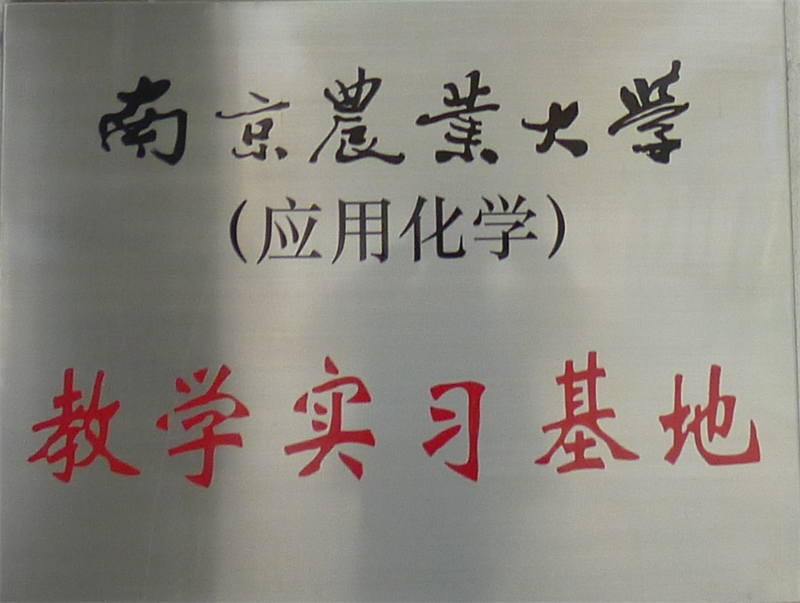 南京農業大学
（应用化学）
教学实习基地